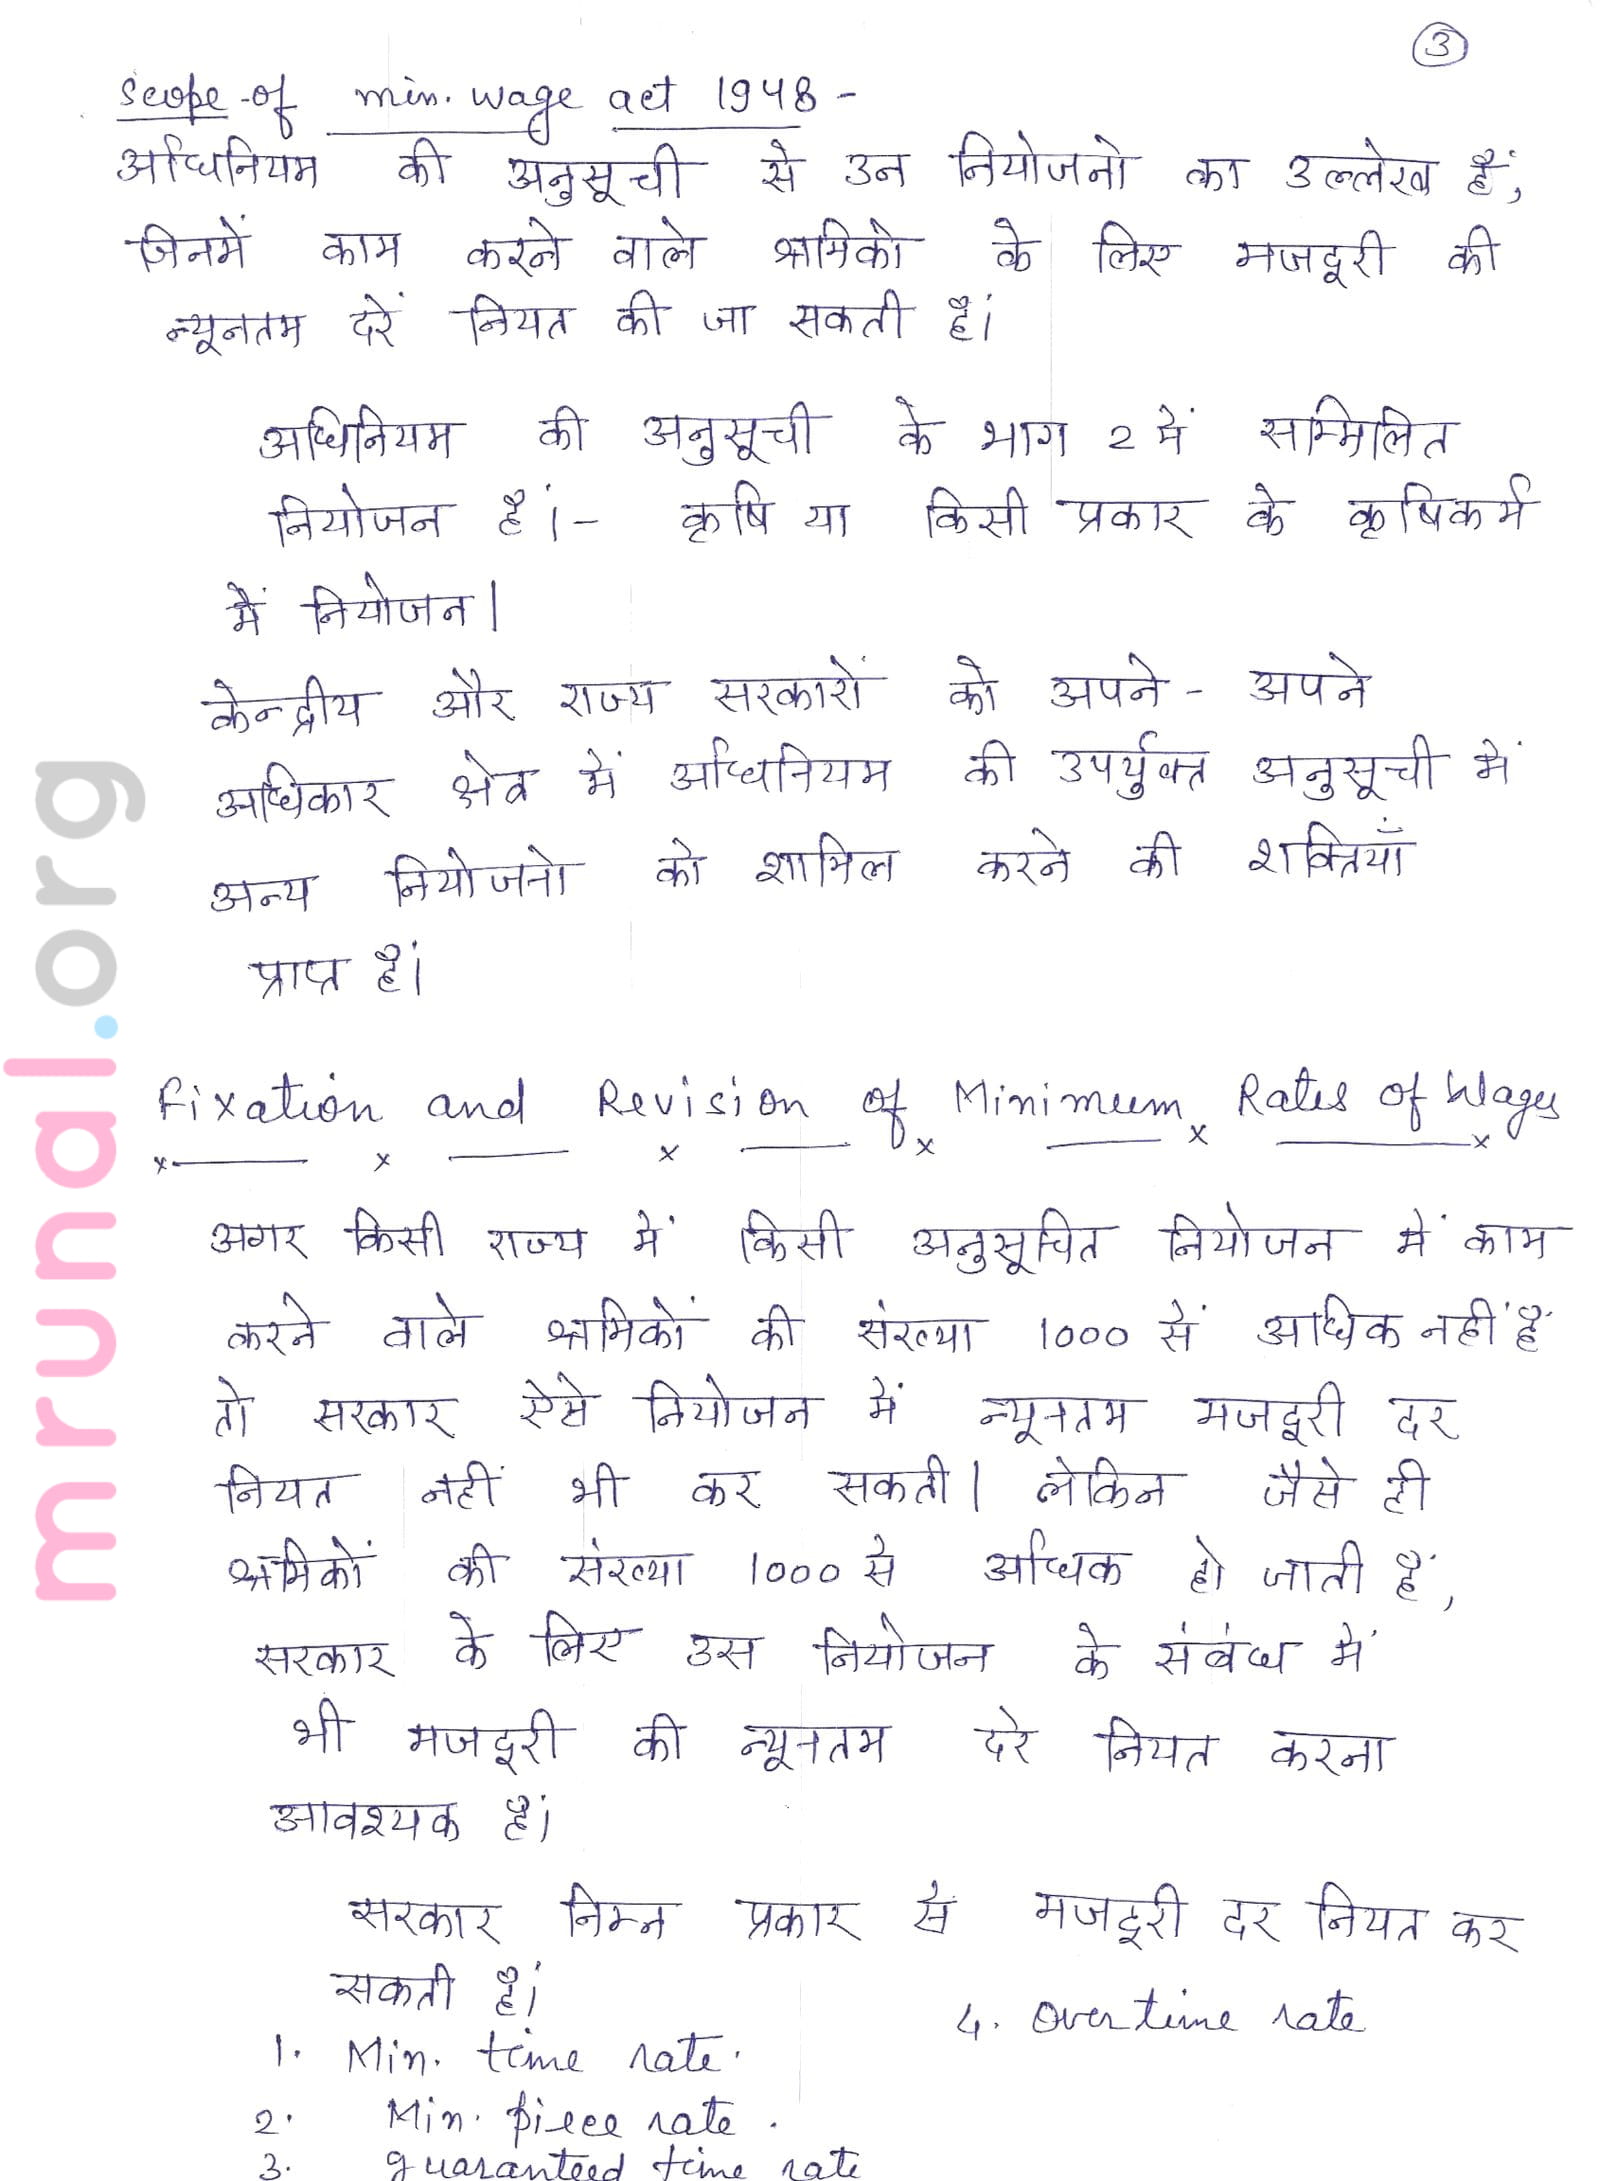 3
Scope of min. wage act 1948 -
अधिनियम की अनुसूची से उन नियोजनो का उल्लेख हैं,
जिनमें काम करने वाले श्रमिको के लिए मजदूरी की
न्यूनतम दरें नियत की जा सकती हैं।
अधिनियम की अनुसूची के भाग 2 में सम्मिलित
नियोजन हैं।- कृषि या किसी प्रकार के कृषिकर्म
में नियोजन।
केन्द्रीय और राज्य सरकारों को अपने - अपने
अधिकार क्षेत्र में अधिनियम की उपर्युक्त अनुसूची में
अन्य नियोजनो को शामिल करने की शक्तियाँ
प्राप्त हैं।
Fixation and Revision of Minimum Rates of Wages
अगर किसी राज्य में किसी अनुसूचित नियोजन में काम
करने वाले श्रमिकों की संख्या 1000 सें अधिक नहीं हैं
तो सरकार ऐसे नियोजन में न्यूनतम मजदूरी दर
नियत नहीं भी कर सकती। लेकिन जैसे ही
श्रमिकों की संख्या 1000 से अधिक हो जाती हैं,
सरकार के लिए उस नियोजन के संबंध में
भी मजदूरी की न्यूनतम दरे नियत करना
आवश्यक हैं।
सरकार निम्न प्रकार से मजदूरी दर नियत कर
सकती हैं।
1. Min. time rate.
2. Min. piece rate.
3. guaranteed time rate
4. Overtime rate
mrunal.org